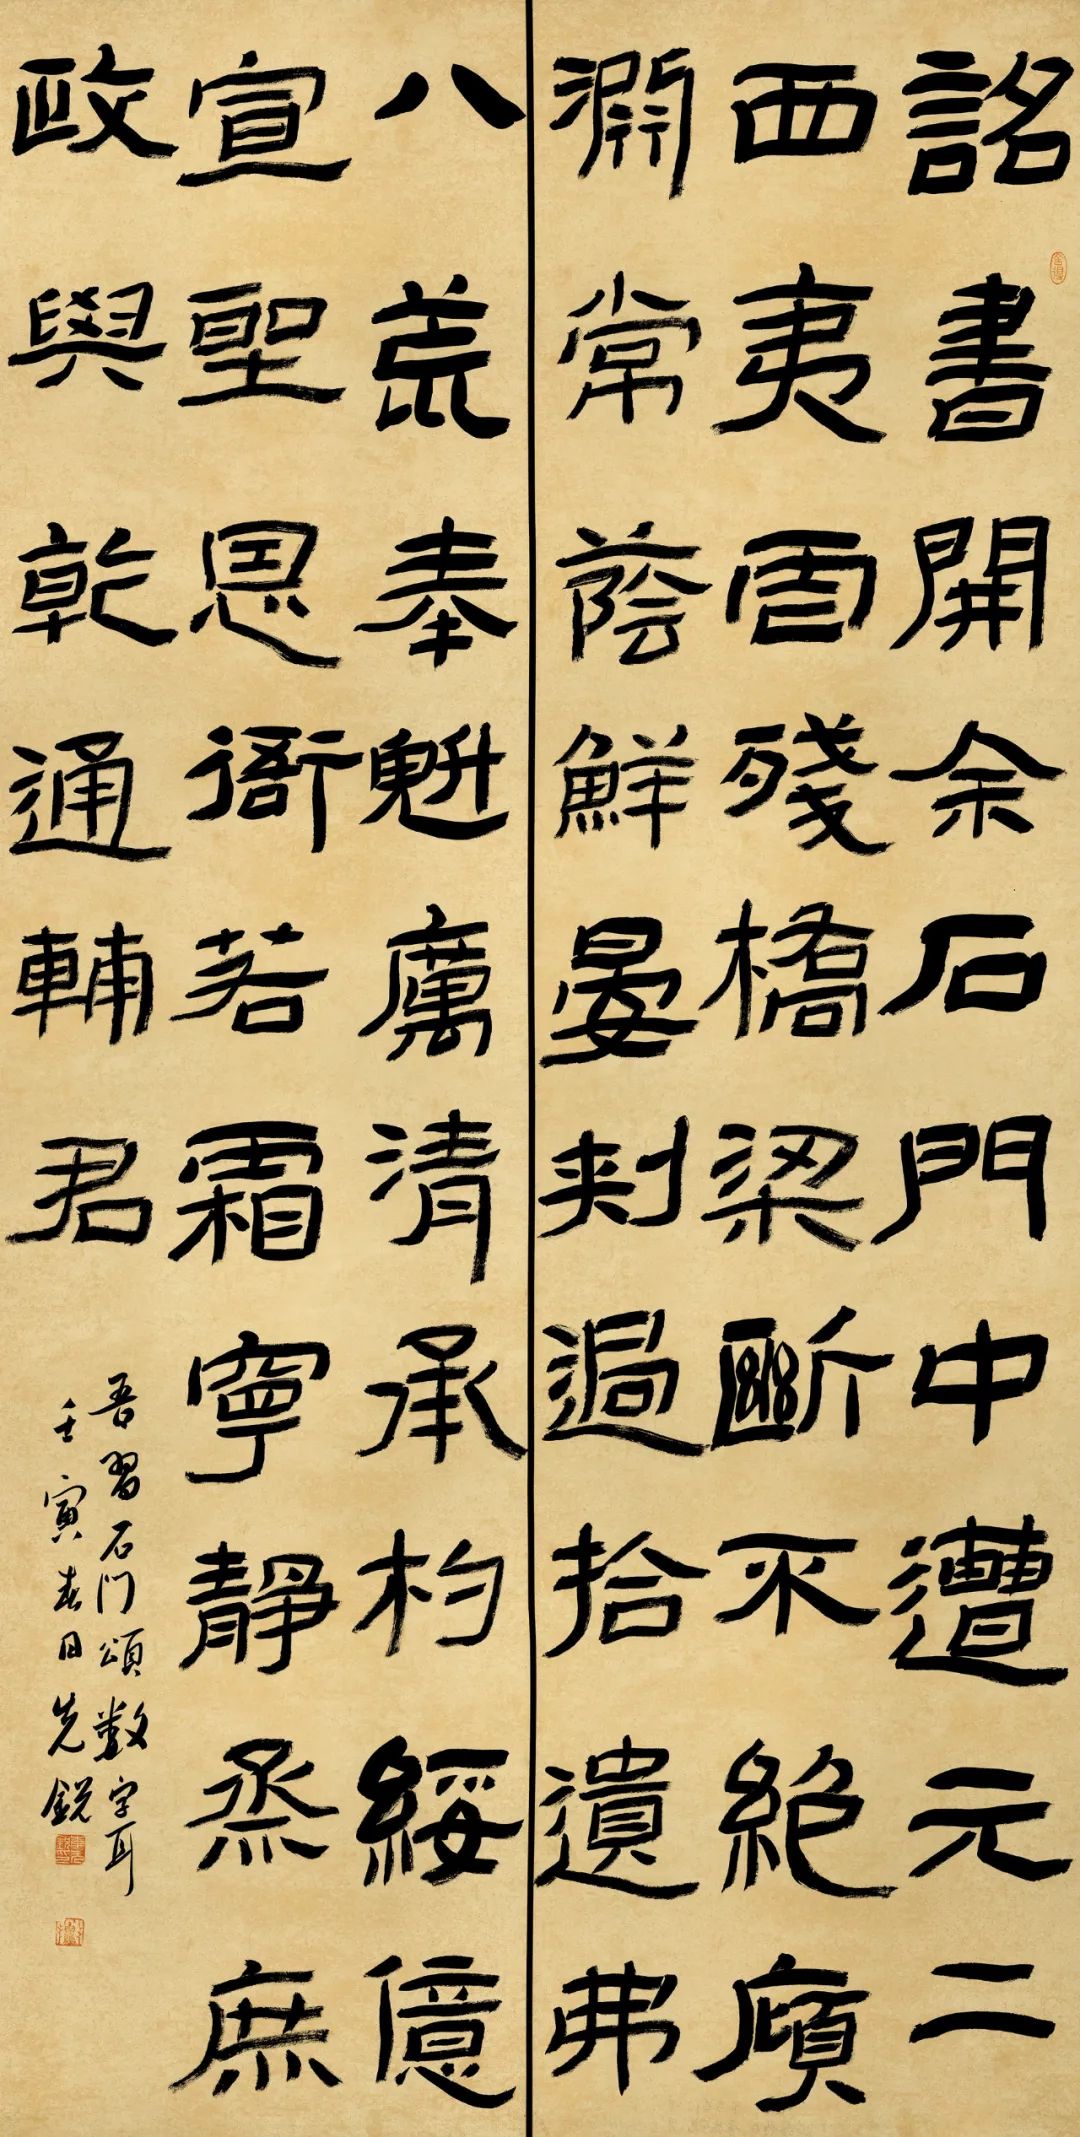 詔書開余石門中遭元二
西夷虐殘橋梁斷不絶廎
淵常蔭鮮晏刾過拾遺弗
八荒奉魁厲清承杓綏億
宣聖恩衙若霜寧靜烝庶
政與乾通輔君
吾習石門頌數字耳
壬寅春日先銳